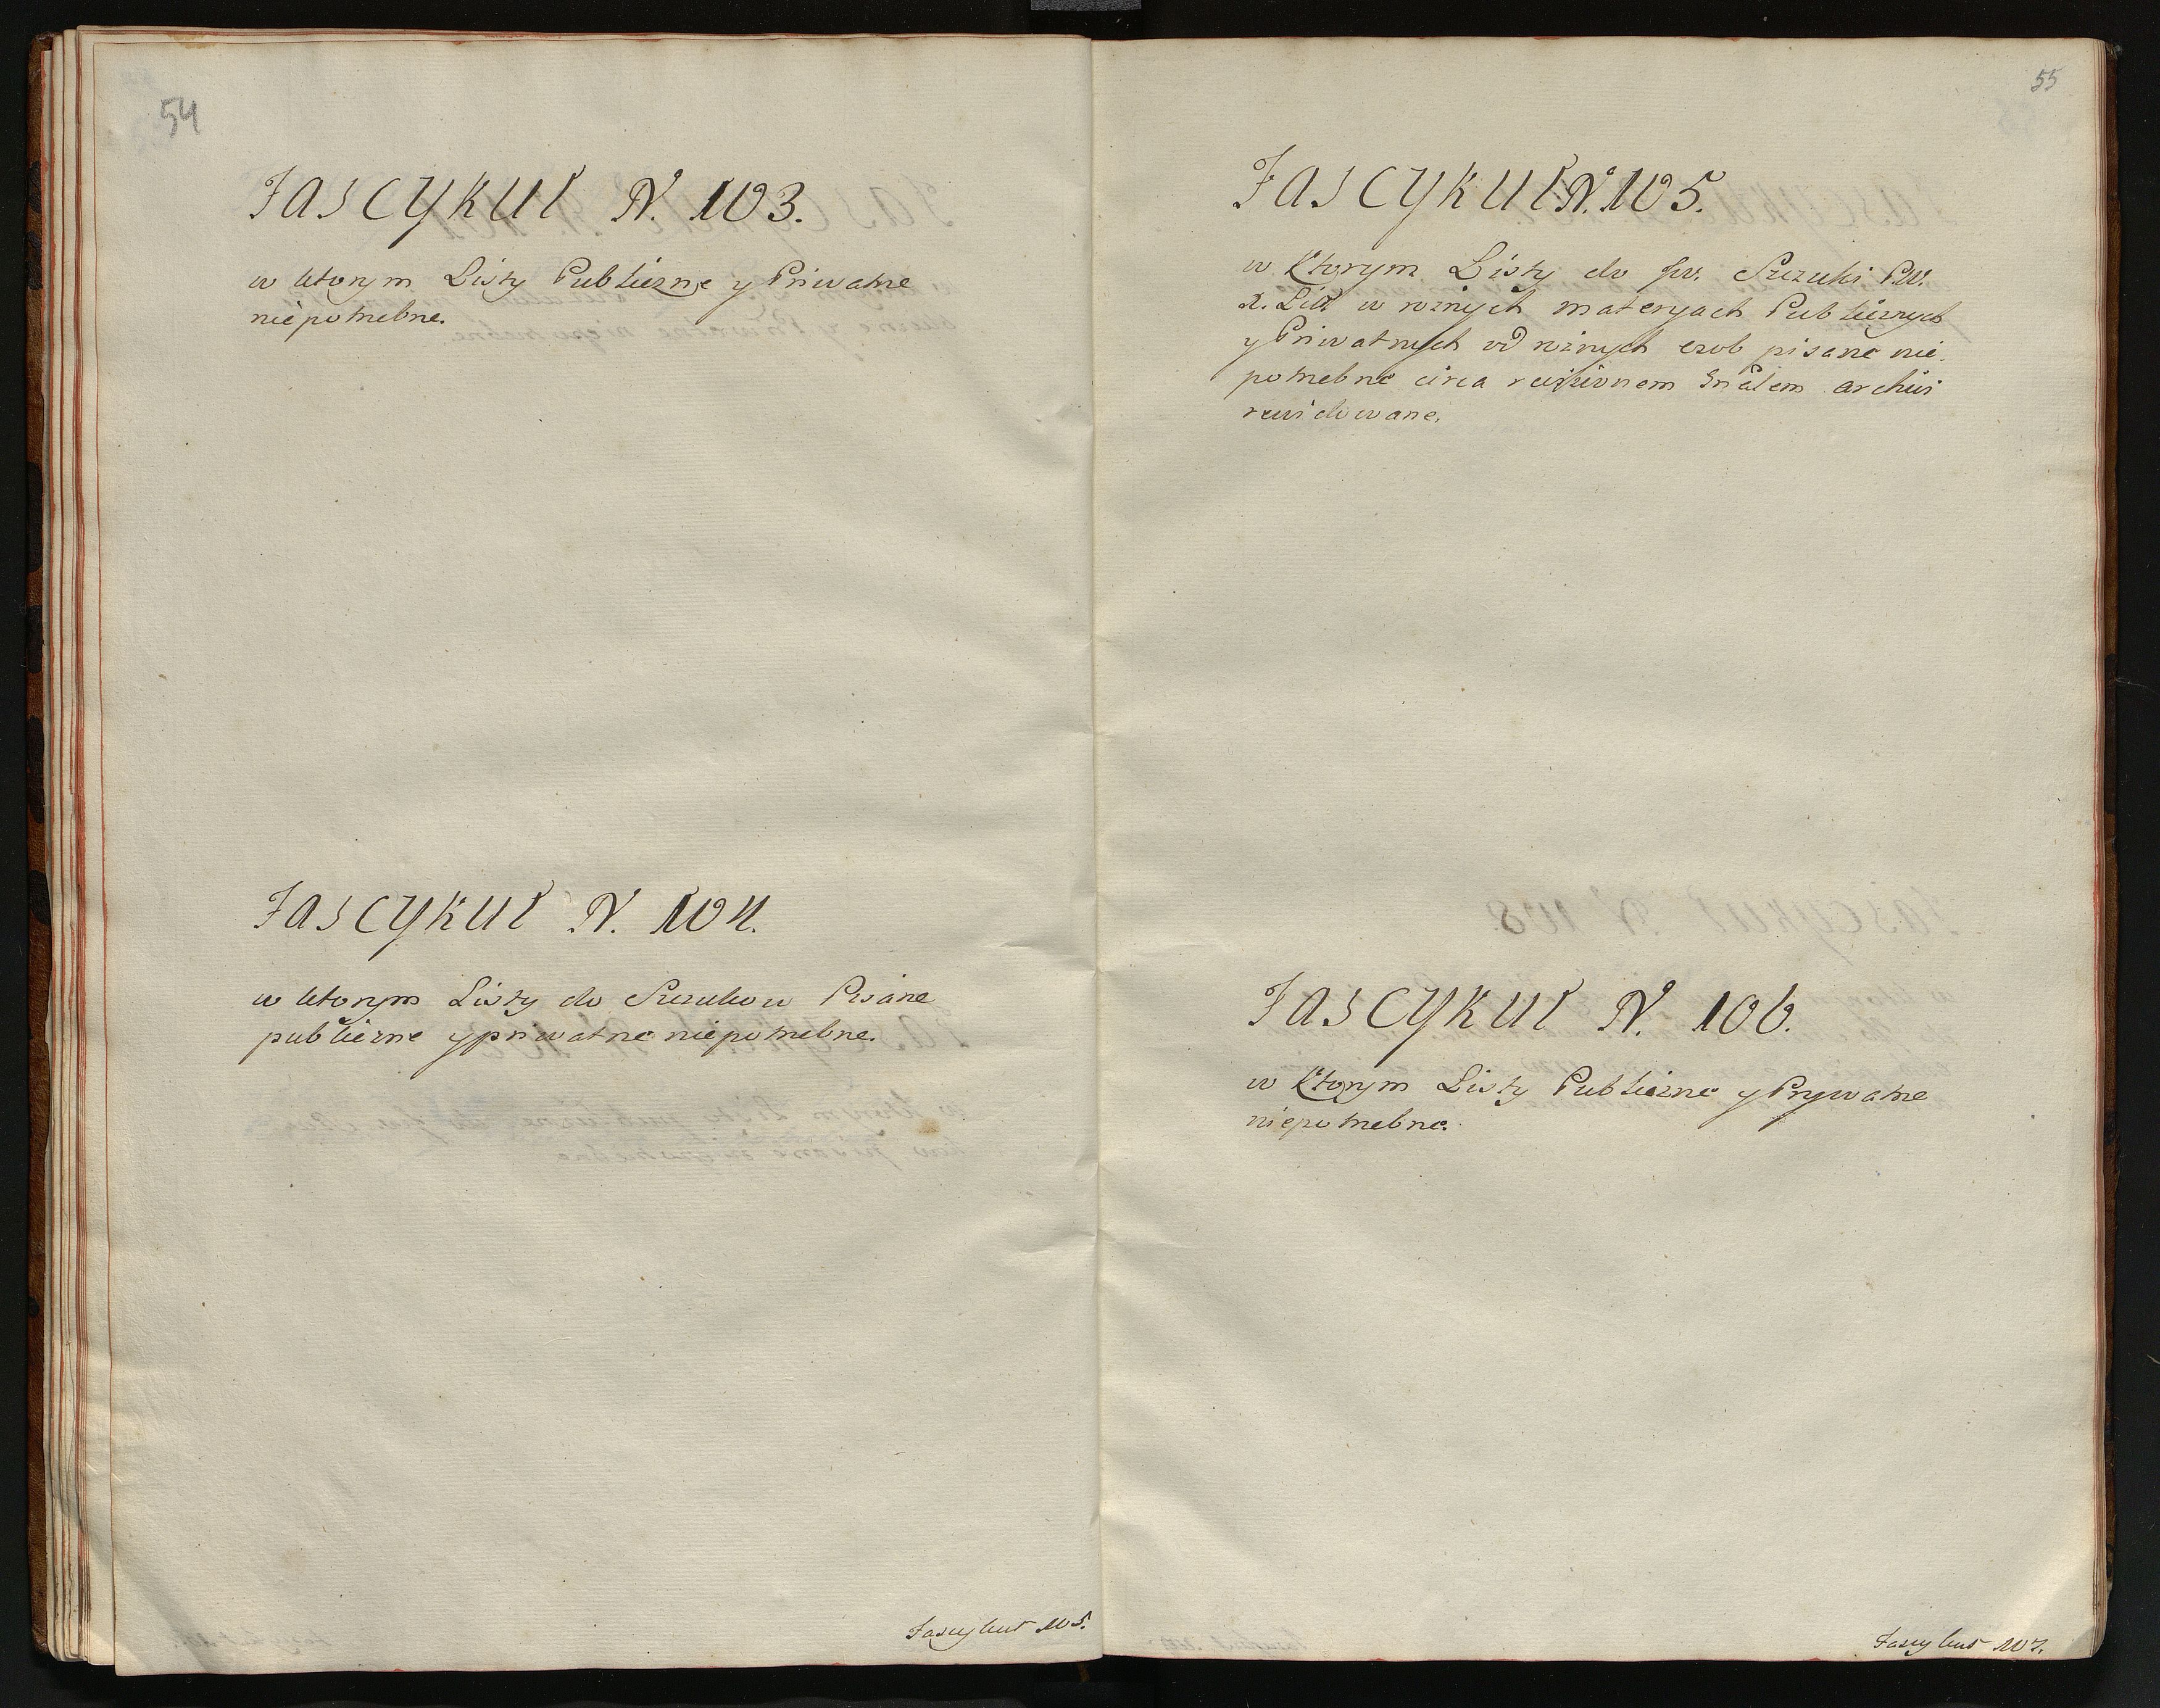 54
Fascykuł N. 103.
w ktorym Listy Publiczne y Priwatne
niepotrzebne.
Fascykuł N. 104.
w ktorym Listy do Szczukow Pisane
publiczne y priwatne niepotrzebne.
Fascykuł 105.
55
Fascykuł N. 105.
w Ktorym Listy do Jw. Szczuki P.W.
X. Lit. w rożnych materyach Publicznych
y Priwatnych od rożnych osob pisane nie
potrzebne circa revisionem archivi
rewidowane.
Fascykuł N. 106.
w Ktorym Listy Publiczne y Prywatne
niepotrzebne.
Fascykuł 107.